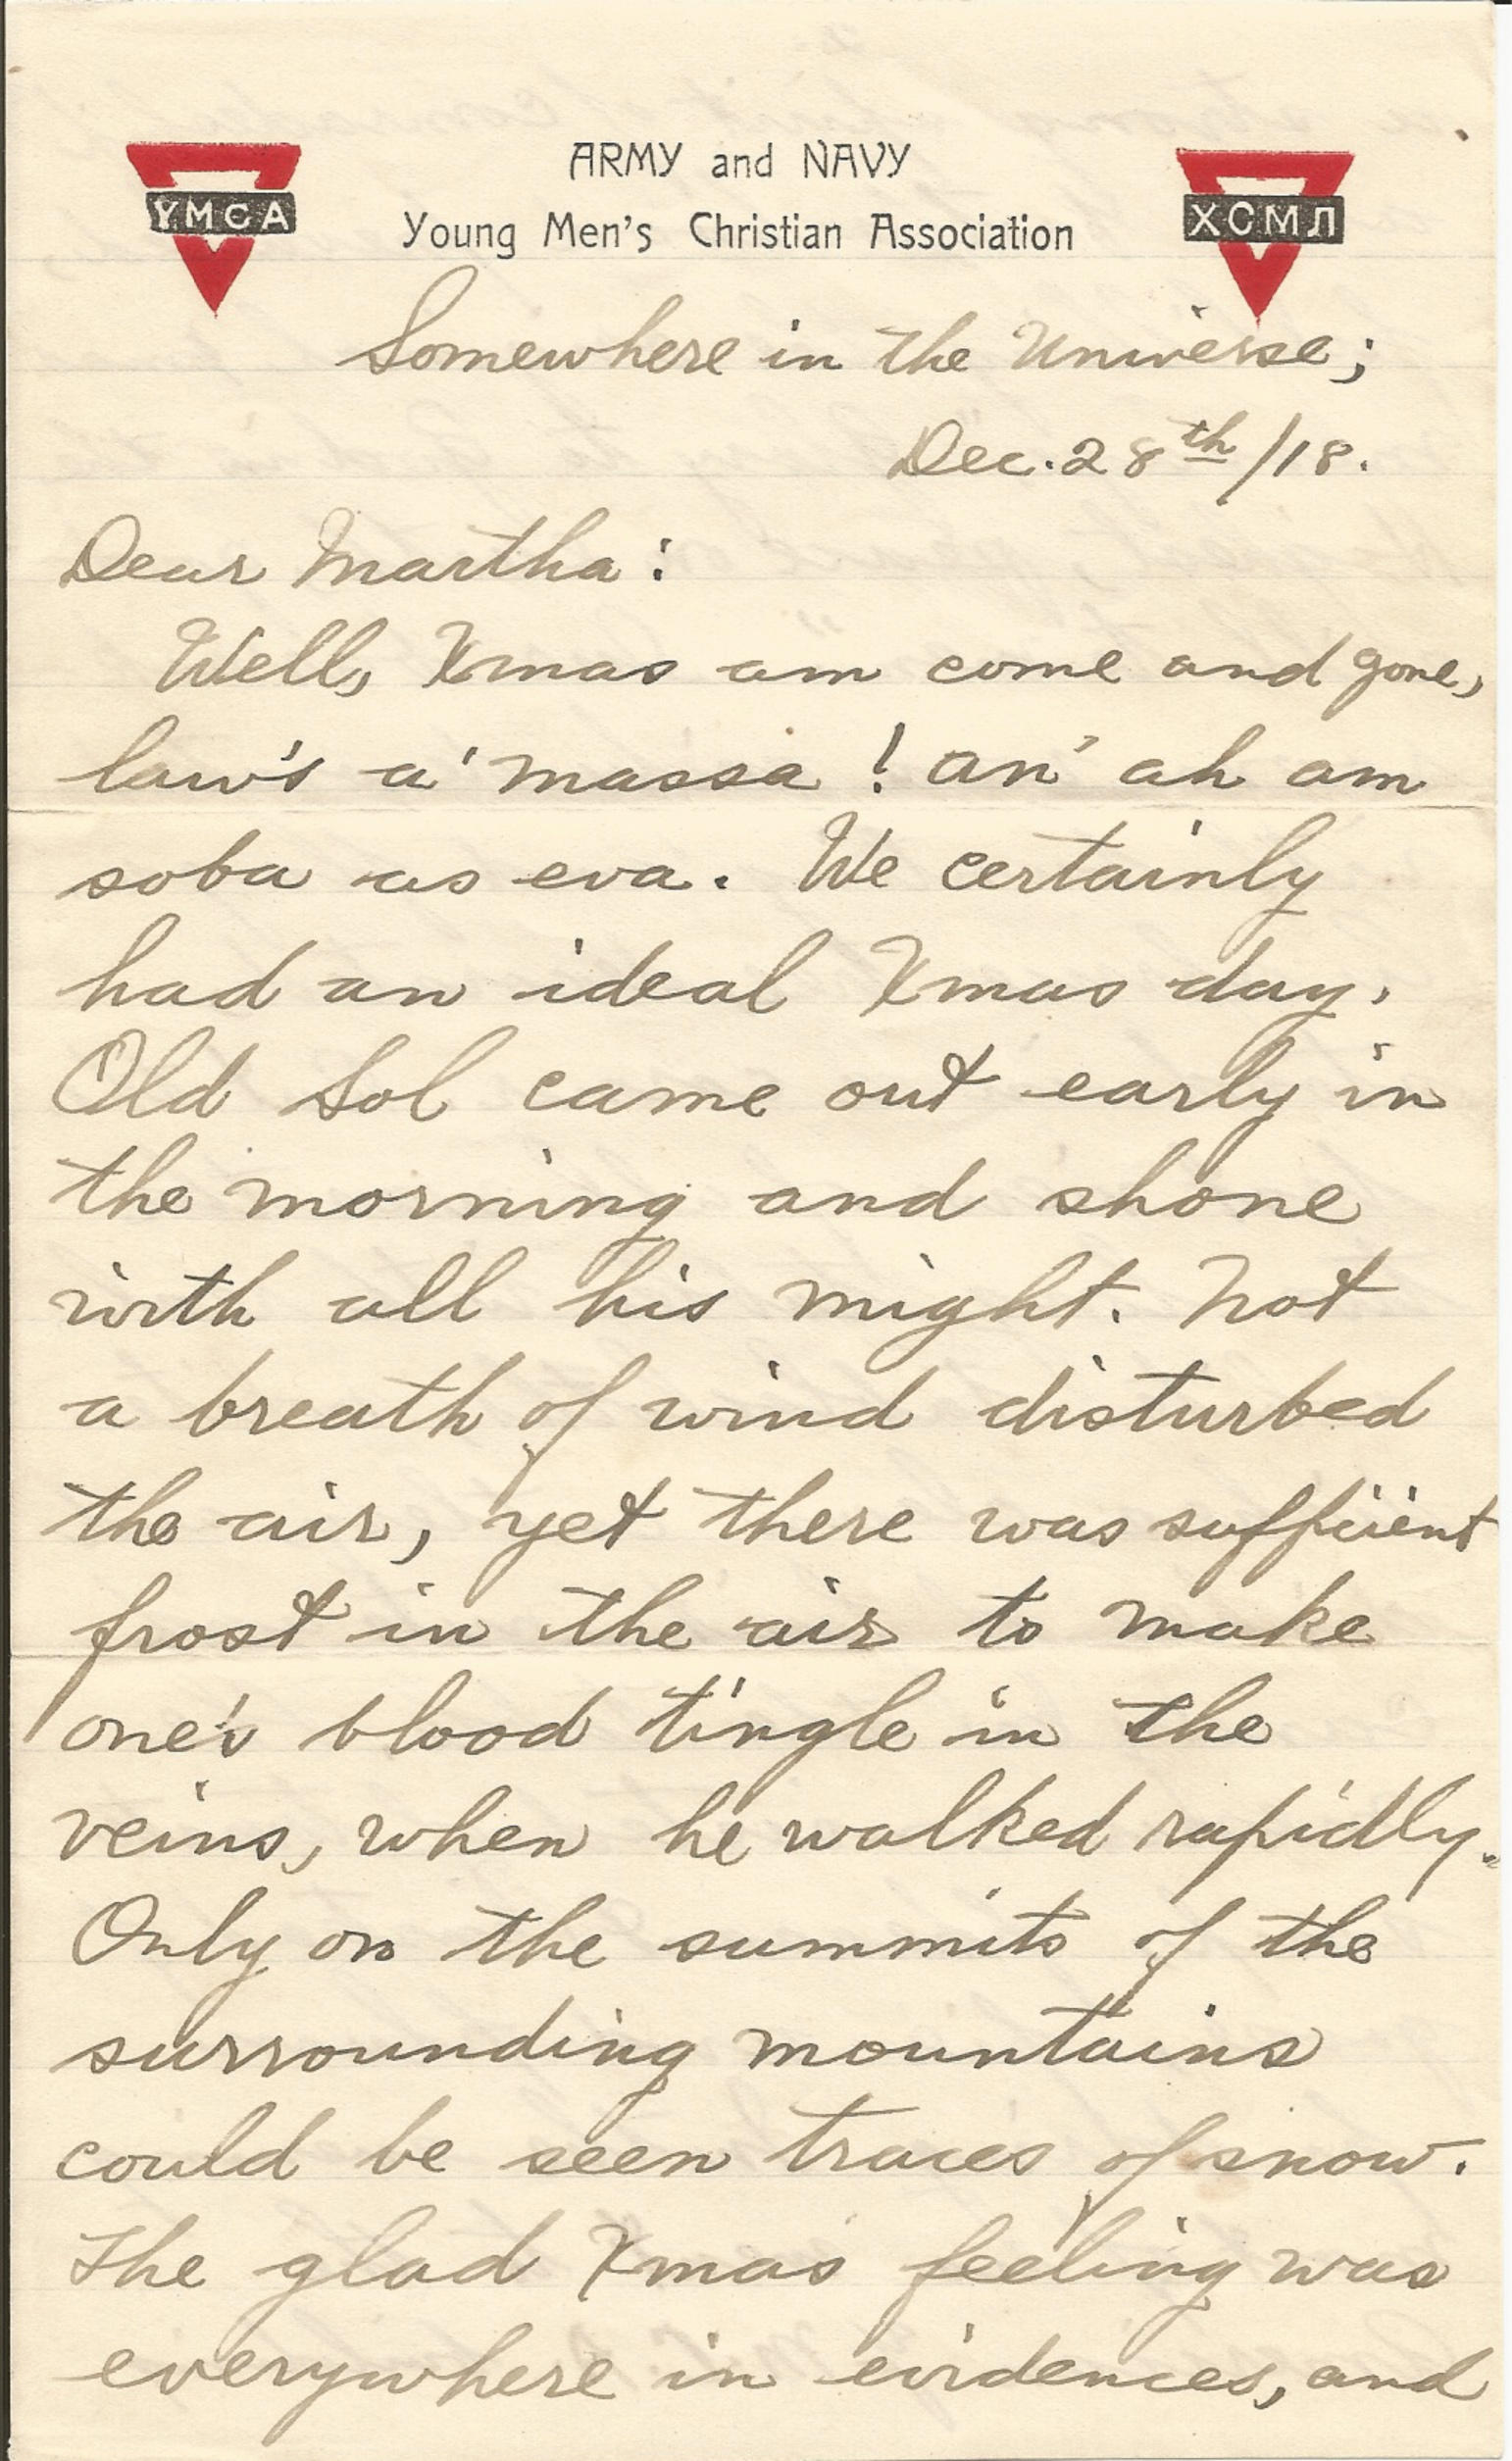 ARMY and NAVY
YMCA Young Men's Christian Association ХСМЛ
Somewhere in the Universe;
Dec. 28th/18.
Dear Martha:
Well, Xmas am come and gone,
law's a' massa! an' ah am
soba as eva. We certainly
had an ideal Xmas day.
Old Sol came out early in
the morning and shone
with all his might. Not
a breath of wind disturbed
the air, yet there was sufficient
frost in the air to make
one's blood tingle in the
veins, when he walked rapidly.
Only on the summits of the
surrounding mountains
could be seen traces of snow.
The glad Xmas feeling was
everywhere in evidences, and